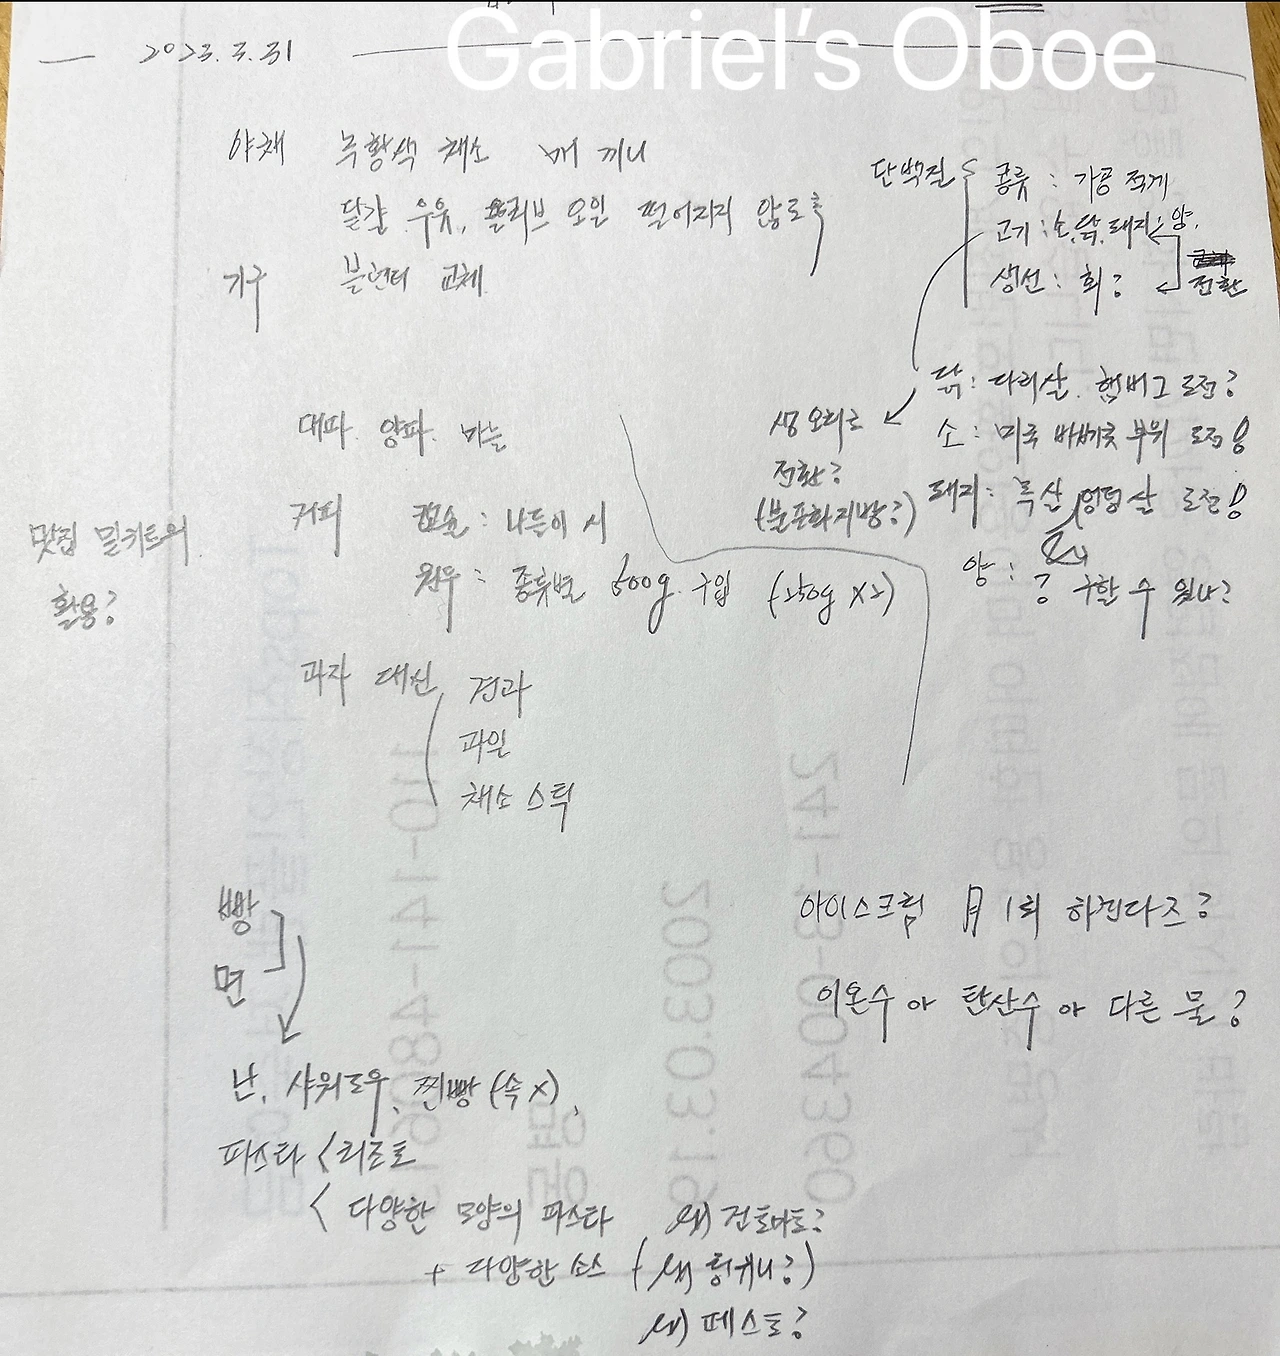 Gabriel's Oboe
2023.3.31
야채 녹황색 채소 매 끼니
달걀 우유, 올리브 오일 떨어지지 않도록
기구 블렌더 교체
단백질
종류 : 가공 적게
고기 : 소, 닭, 돼지, 양.
생선 : 회?
전환
닭 : 다리살. 햄버그 도전?
소 : 미국 바베큐 부위 도전!
돼지 : 목살 엉덩살 도전!
양 : ? 구할 수 있나?
생 오리로
전환?
(불포화지방?)
대파. 양파. 마늘
커피 캡슐 : 나들이 시
원두 : 종류별 500g 구입 (250g x2)
맛집 밀키트의
활용?
과자 대신 견과
과일
채소 스틱
빵
면
난, 샤워도우, 찐빵 (속 x),
파스타 < 리조또
< 다양한 모양의 파스타
+ 다양한 소스
ex) 건토마토?
(ex)
ex) 페스토?
아이스크림 月 1회 하겐다즈?
이온수 or 탄산수 or 다른 물?
241-48-004360
2003.03.19